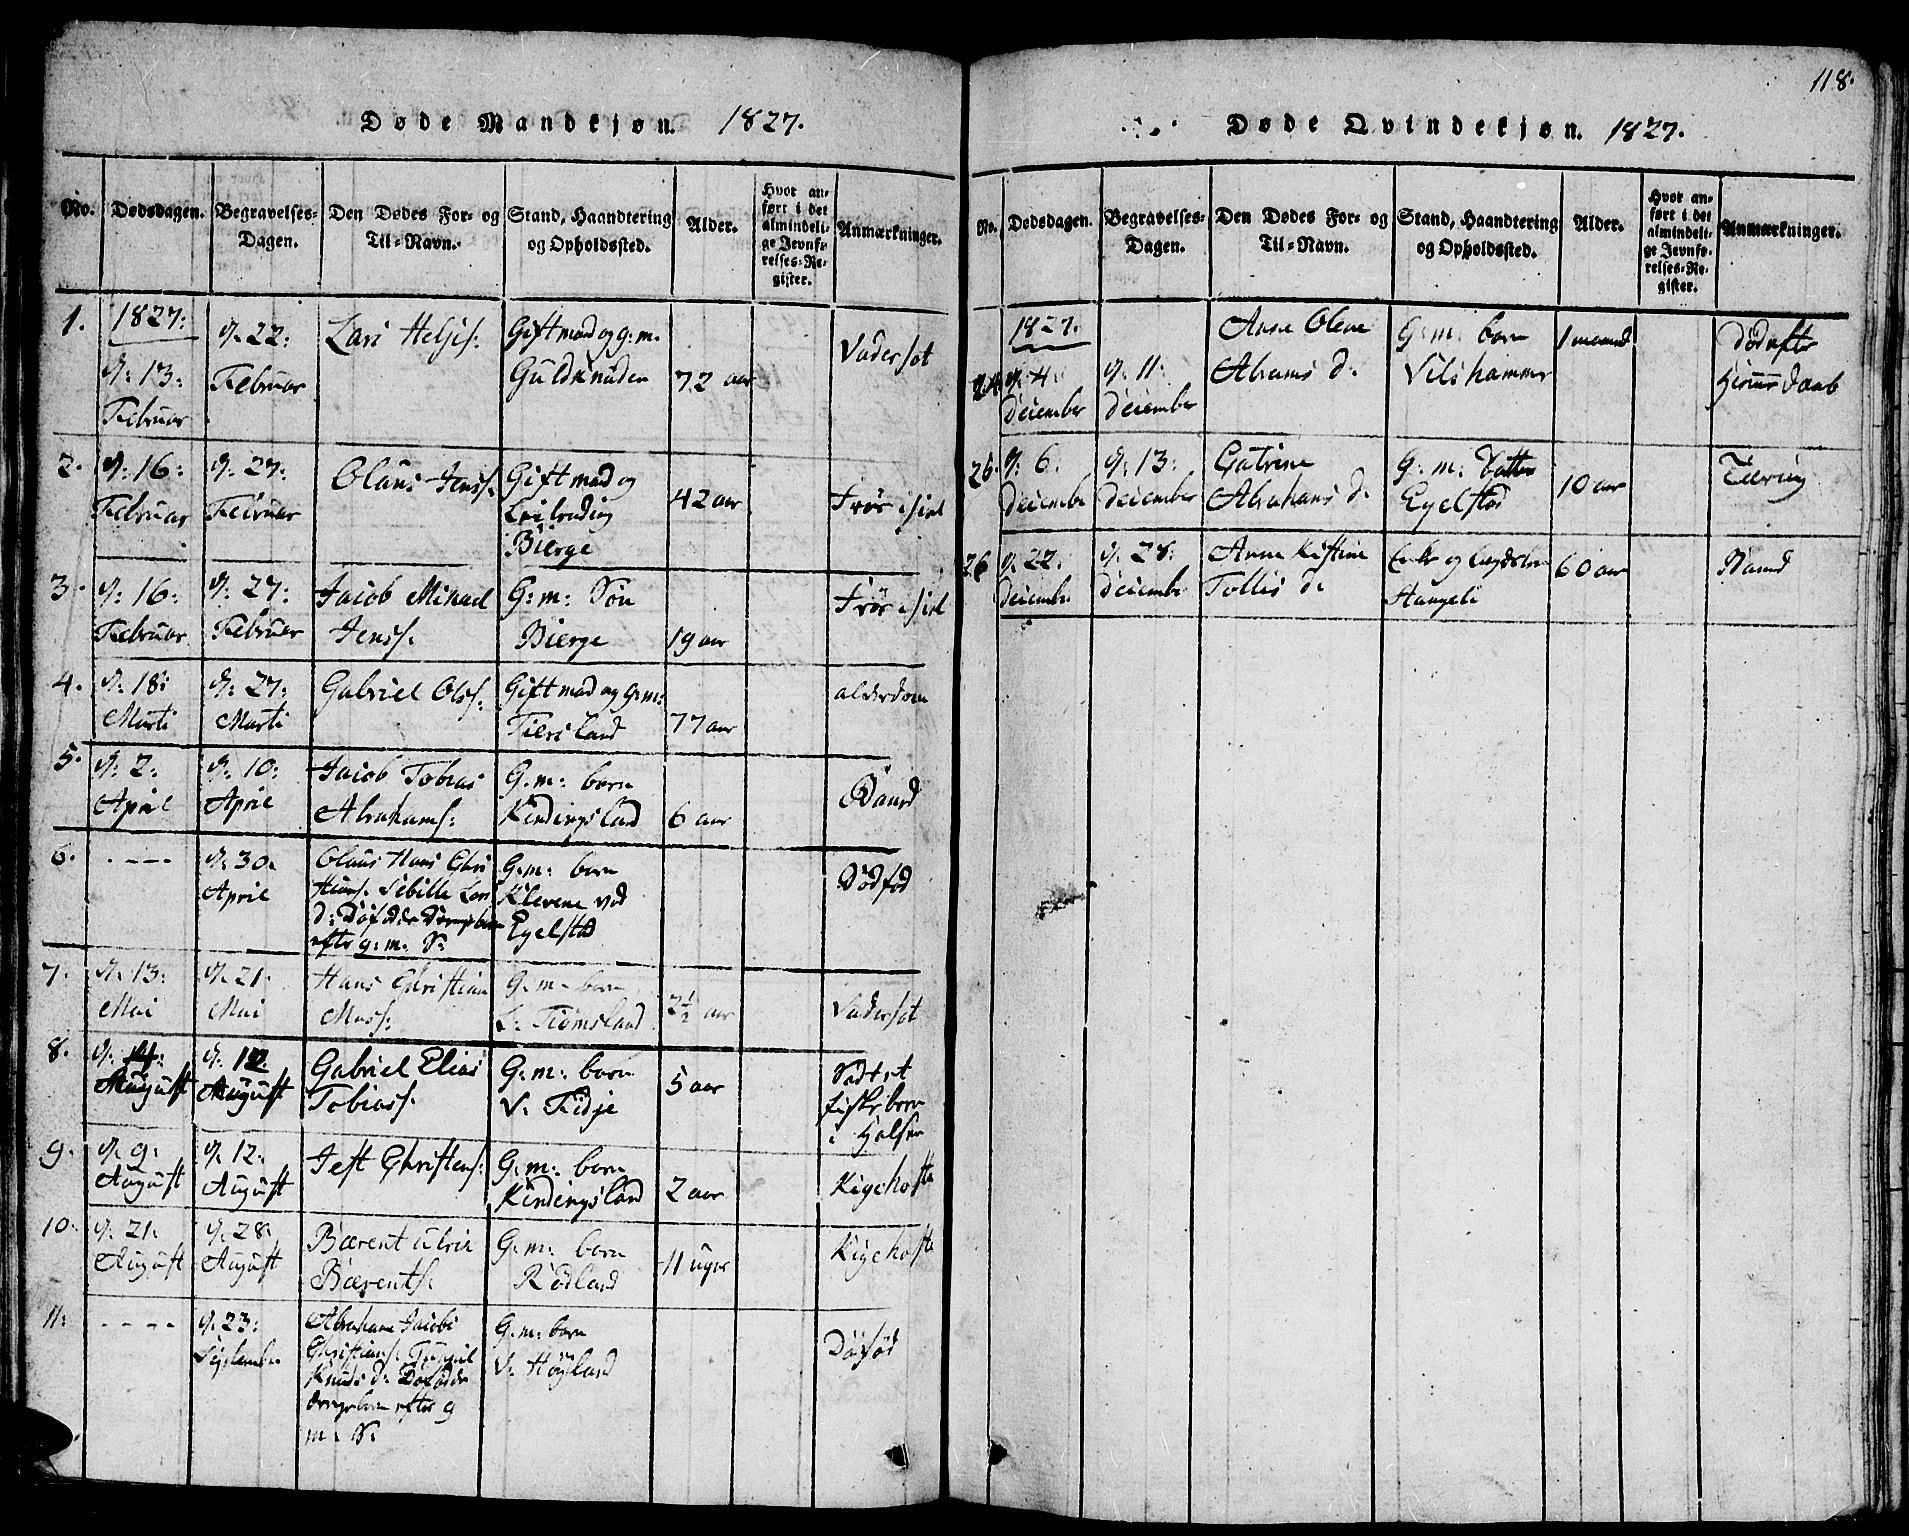 Døde Mandkjøn. 1827.
No. Dødsdagen. Begravelses-Dagen. Den Dødes For- og Til-Navn. Stand, Haandtering og Opholdssted. Alder. Hvor anført i det almindelige Jevnførelses-Register. Anmærkninger.
1. 1827:
d: 13: Februar d. 22: Februar Lari Heljes: Gift mad og g: m. Guldknuden 72 aar Vadersot
2. d: 16: Februar d: 27: Februar Olaus Jenss. Gift mad og Bierge 42 aar
3. d: 16: Februar d: 27: Februar Jacob Mikael Jenss. G: m: Sön Bierge 19 aar
4. d: 18: Marti d: 27: Marti Gabriel Olss. Gift mad og g: m: Tiersland 77 aar alderdom
5. d: 2: April d: 10: April Jacob Tobias Abrahams: G: m: born Kindingsland 6 aar Baand
6. ---- d: 30. April Olaus Hans Chri
Hans. Sibille Lari
d: Döfödde
efter g: m. S: G: m: born Klevene ved Egelstad Dödföd
7. d. 13: Mai d. 21: Mai Hans Christian Mass: G: m: born L: Tiömsland 2½ aar Vadersot
8. d: 4: August d: 12 August Gabriel Elias Tobiass. G: m: born V: Fidje 5 aar fiske been i Halsen
9. d. 9: August d. 12: August Jest Christens: G: m: born Kindingsland 2 aar Kigehoste
10: d. 21: August d. 28: August Bærent Ulrik Bærents. G: m: born Rödland 11 uger Kigehoste
11: ---- d. 23: September Abraham Jacobs
Christians.
Knuds d: Döfödde
efter g
m: S: G: m: born V: Höyland Döföd
118.
Døde Qvindekjøn. 1827.
No. Dødsdagen. Begravelses-Dagen. Den Dødes For- og Til-Navn. Stand, Haandtering og Opholdssted. Alder. Hvor anført i det almindelige Jevnførelses-Register. Anmærkninger.
1827.
24 d: 4: December d: 11: December Anne Olene Abrams d. G: m: born Vilshammer 1 maaned Död efter Hiemme Daab
25. d: 6. December d: 13: December Catrine Abrahams d. G: m: Datter Egelstad 10 aar Tæring
26 d: 22: December d: 28: December Anne Kistine Tollis d. Enke og 60 aar Baand